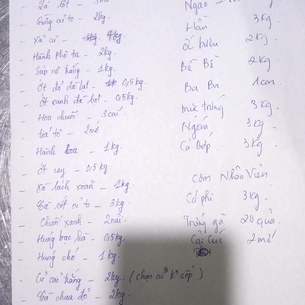 Lá lốt - 3kg
Gừng củ to - 2kg.
Xả củ - 4kg
Hành phi ta - 2kg.
Súp nơ trắng - 1kg
Ớt đỏ đà lạt - 0,5kg
Ớt xanh đà lạt - 0,5kg.
Hoa chuối - 3 cái
tía tô - 2mớ
Hành - 1kg.
Ớt cay - 0,5kg
Xà lách xoăn - 2kg
- 3kg
Chuối xanh - 2nải
Húng bạc hà - 0,5kg.
Húng chó - 1kg.
Củ cải trắng - 2kg (chọn củ K° cộp)
Cà chua đỏ - 2kg
Ngao
Hàu 3kg
Ốc hương 2kg
Bề Bề 2kg
Ba Ba 1con
trứng 3kg.
Ngán 3kg
Cá Bớp 3kg.
Cơm Nhân Viên
Cá phi 3kg.
Trứng gà 20 quả.
Cải Cúc 2 mớ